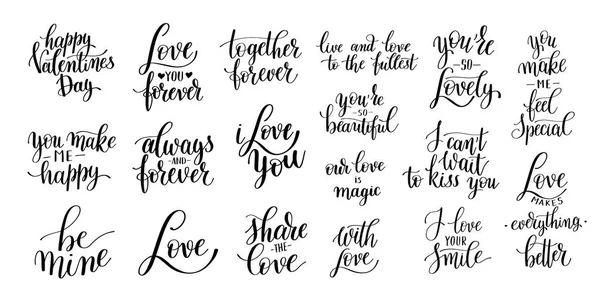 happy
Valentines
Day
Love
YOU
forever
together
forever
live and love
to the fullest
you're
SO
Lovely
you
make
ME
feel
Special
you make
ME
happy
always
AND
forever
i Love
You
you're
SO
beautiful
our love
is
magic
I can't
Wait
to kiss you
Love
MAKES
everything
better
be
mine
Love
share
THE
love
with
Love
I love
YOUR
Smile